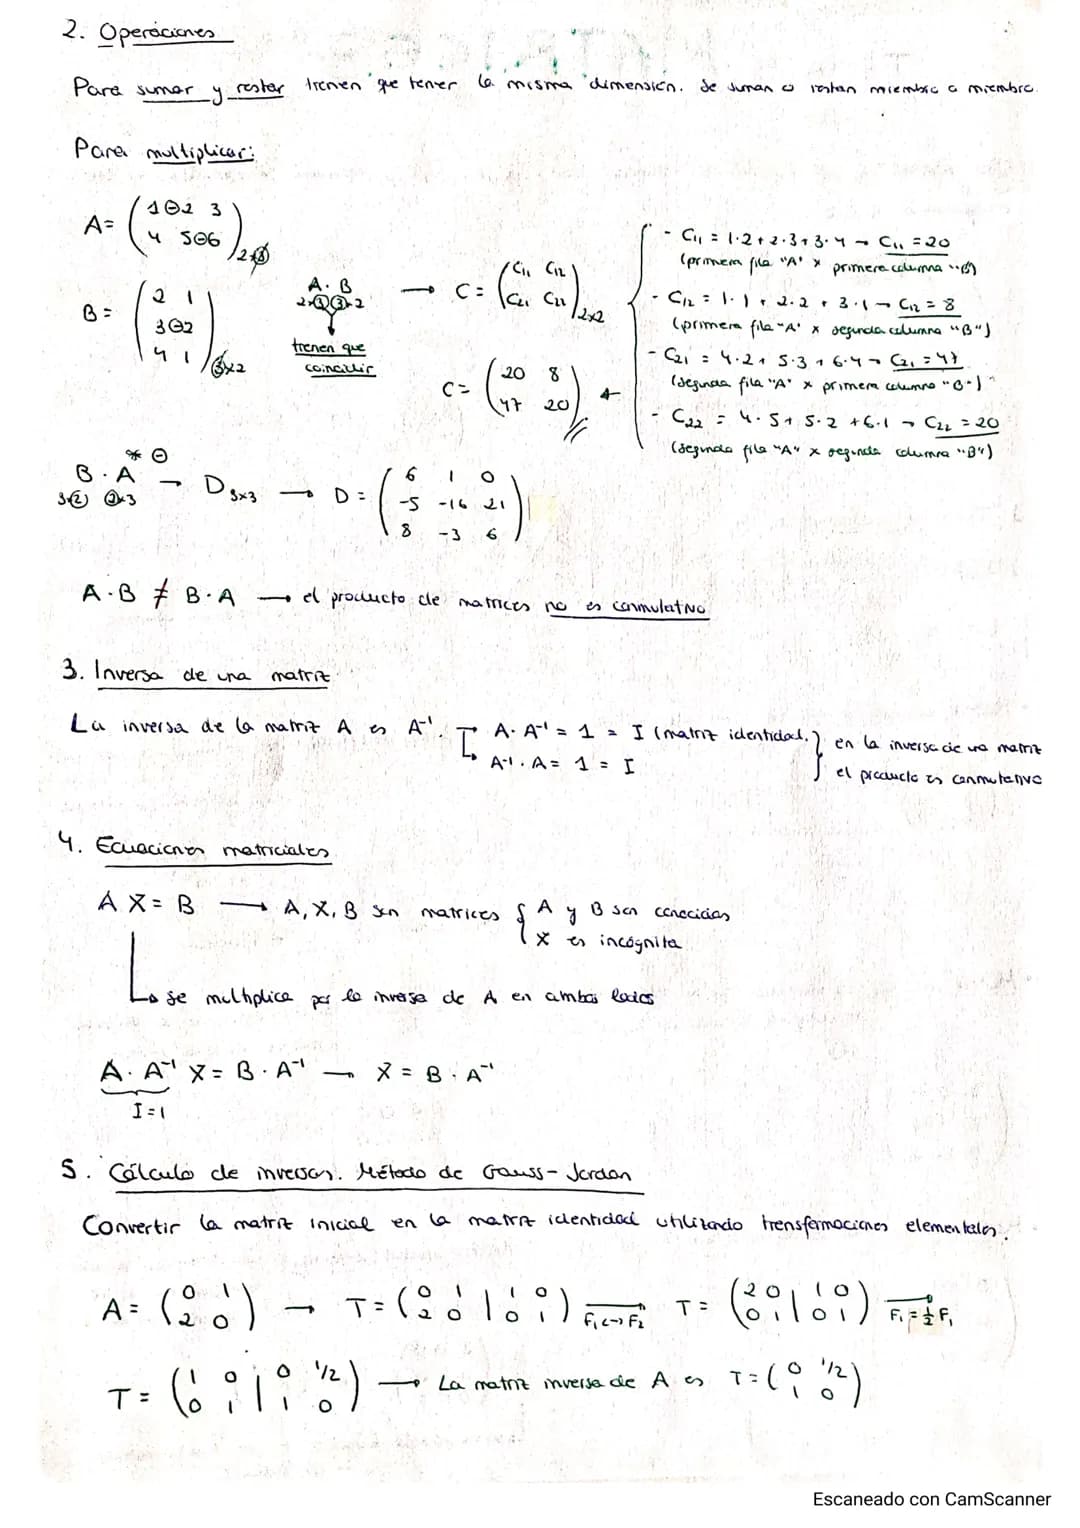 2. Operaciones
Para sumar y restar tienen que tener la misma dimensión. Se suman o restan miembro a miembro.
Para multiplicar:
A= (1 ⊖2 3 / 4 5⊖6) 2x3
B= (2 1 / 3⊖2 / 4 1) 3x2
A·B
2x3 3x2
tienen que
coincidir
→ C= (C11 C12 / C21 C22) 2x2
- C11 = 1·2+2·3+3·4 → C11 = 20
(primera fila "A" x primera columna "B")
- C12 = 1·1+2·2+3·1 → C12 = 8
(primera fila "A" x segunda columna "B")
- C21 = 4·2+5·3+6·4 → C21 = 47
(segunda fila "A" x primera columna "B")
- C22 = 4·5+5·2+6·1 → C22 = 20
(segunda fila "A" x segunda columna "B")
C= (20 8 / 47 20) ←
* ⊖
B·A → D3x3 → D= (6 1 0 / -5 -16 21 / 8 -3 6)
3x2 2x3
A·B ≠ B·A → el producto de matrices no es conmutativo
3. Inversa de una matriz
La inversa de la matriz A es A⁻¹. A·A⁻¹ = 1 = I (matriz identidad.
A⁻¹·A = 1 = I
} en la inversa de una matriz
el producto es conmutativo
4. Ecuaciones matriciales
A X = B → A, X, B son matrices { A y B son conocidas
X es incógnita
↳ se multiplica por la inversa de A en ambos lados
A·A⁻¹ X = B·A⁻¹ → X = B·A⁻¹
I=1
5. Cálculo de inversas. Método de Gauss-Jordan
Convertir la matriz inicial en la matriz identidad utilizando transformaciones elementales.
A= (0 1 / 2 0) → T= (0 1 | 1 0 / 2 0 | 0 1) F1↔F2 T= (2 0 | 1 0 / 0 1 | 0 1) F1=½F1
T= (1 0 | 0 1/2 / 0 1 | 1 0) → La matriz inversa de A es T= (0 1/2 / 1 0)
Escaneado con CamScanner